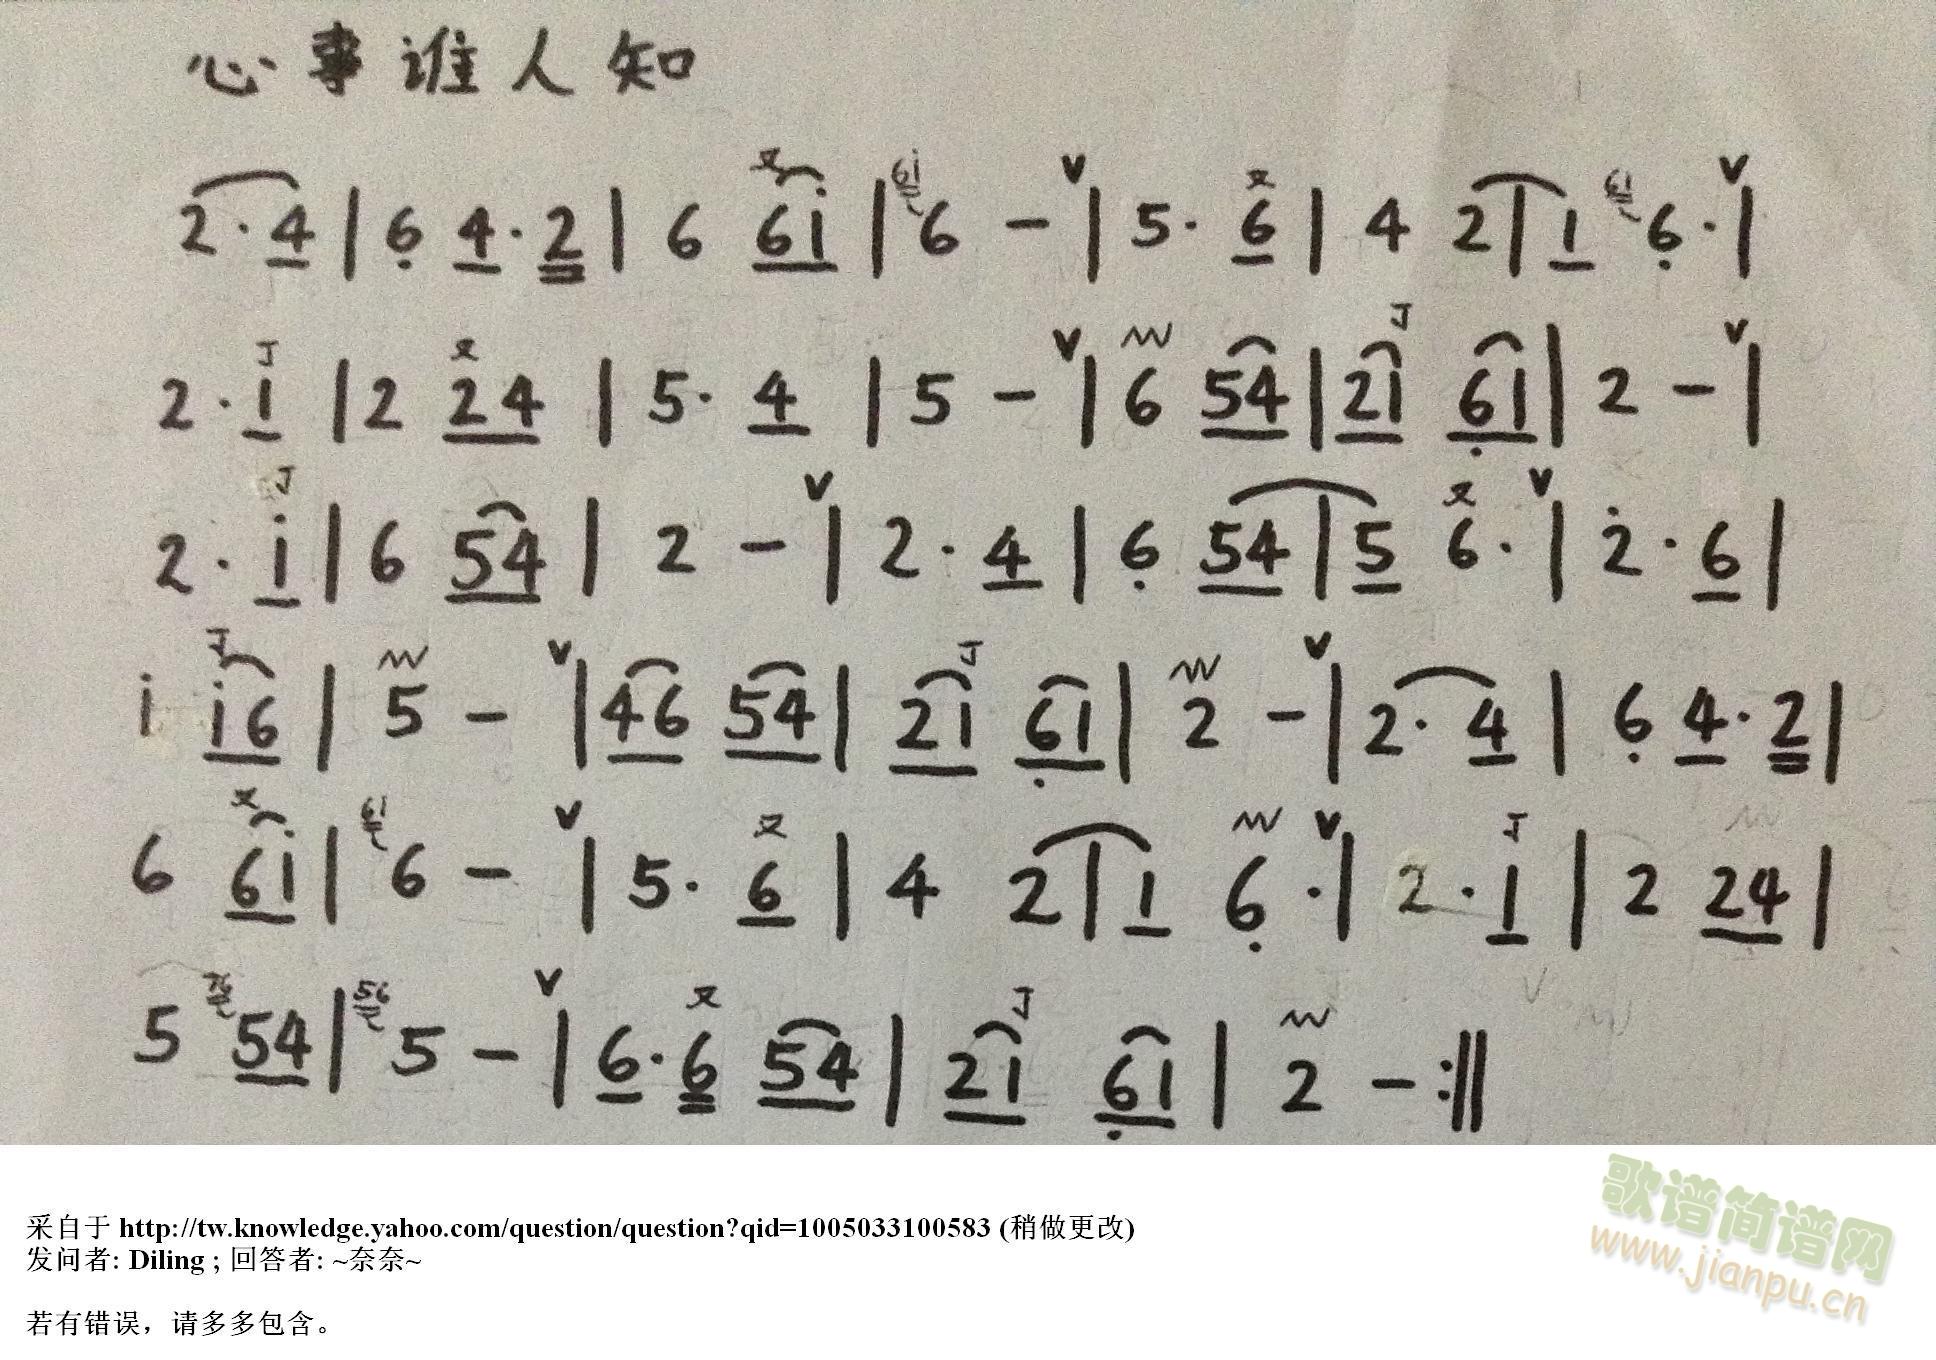 心事谁人知
2·4 | 6 4·2 | 6 6i | 6i 6 - V | 5· 6 | 4 2 | 1 61 6· V |
2·1 | 2 24 | 5· 4 | 5 - V | 6 54 | 21 61 | 2 - V |
2·i | 6 54 | 2 - V | 2·4 | 6 54 | 5 6· V | 2·6 |
i i6 | 5 - V | 46 54 | 21 61 | 2 - V | 2·4 | 6 4·2 |
6 6i | 6i 6 - V | 5· 6 | 4 2 | 1 6· V | 2·1 | 2 24 |
5 54 | 56 5 - V | 6·6 54 | 21 61 | 2 - :||
采自于 http://tw.knowledge.yahoo.com/question/question?qid=1005033100583 (稍做更改)
发问者: Diling ; 回答者: ~奈奈~
若有错误，请多多包含。
歌谱简谱网
www.jianpu.cn